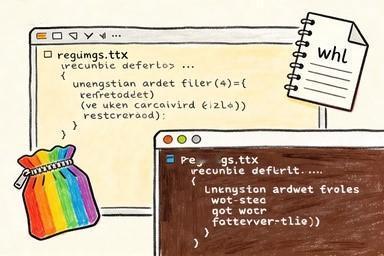 regumgs.ttx
recunbic deferlos ...
{
unengstian ardet filer(4)={
renfretoddet)
(ve uken carcaivird
restcreraod):
}
}
whl
gs.ttx
recunbie defertit ....
{
Lunengstion ardwet Evoles
wot-steo
got wotr
fattevver-tlie))
}
}